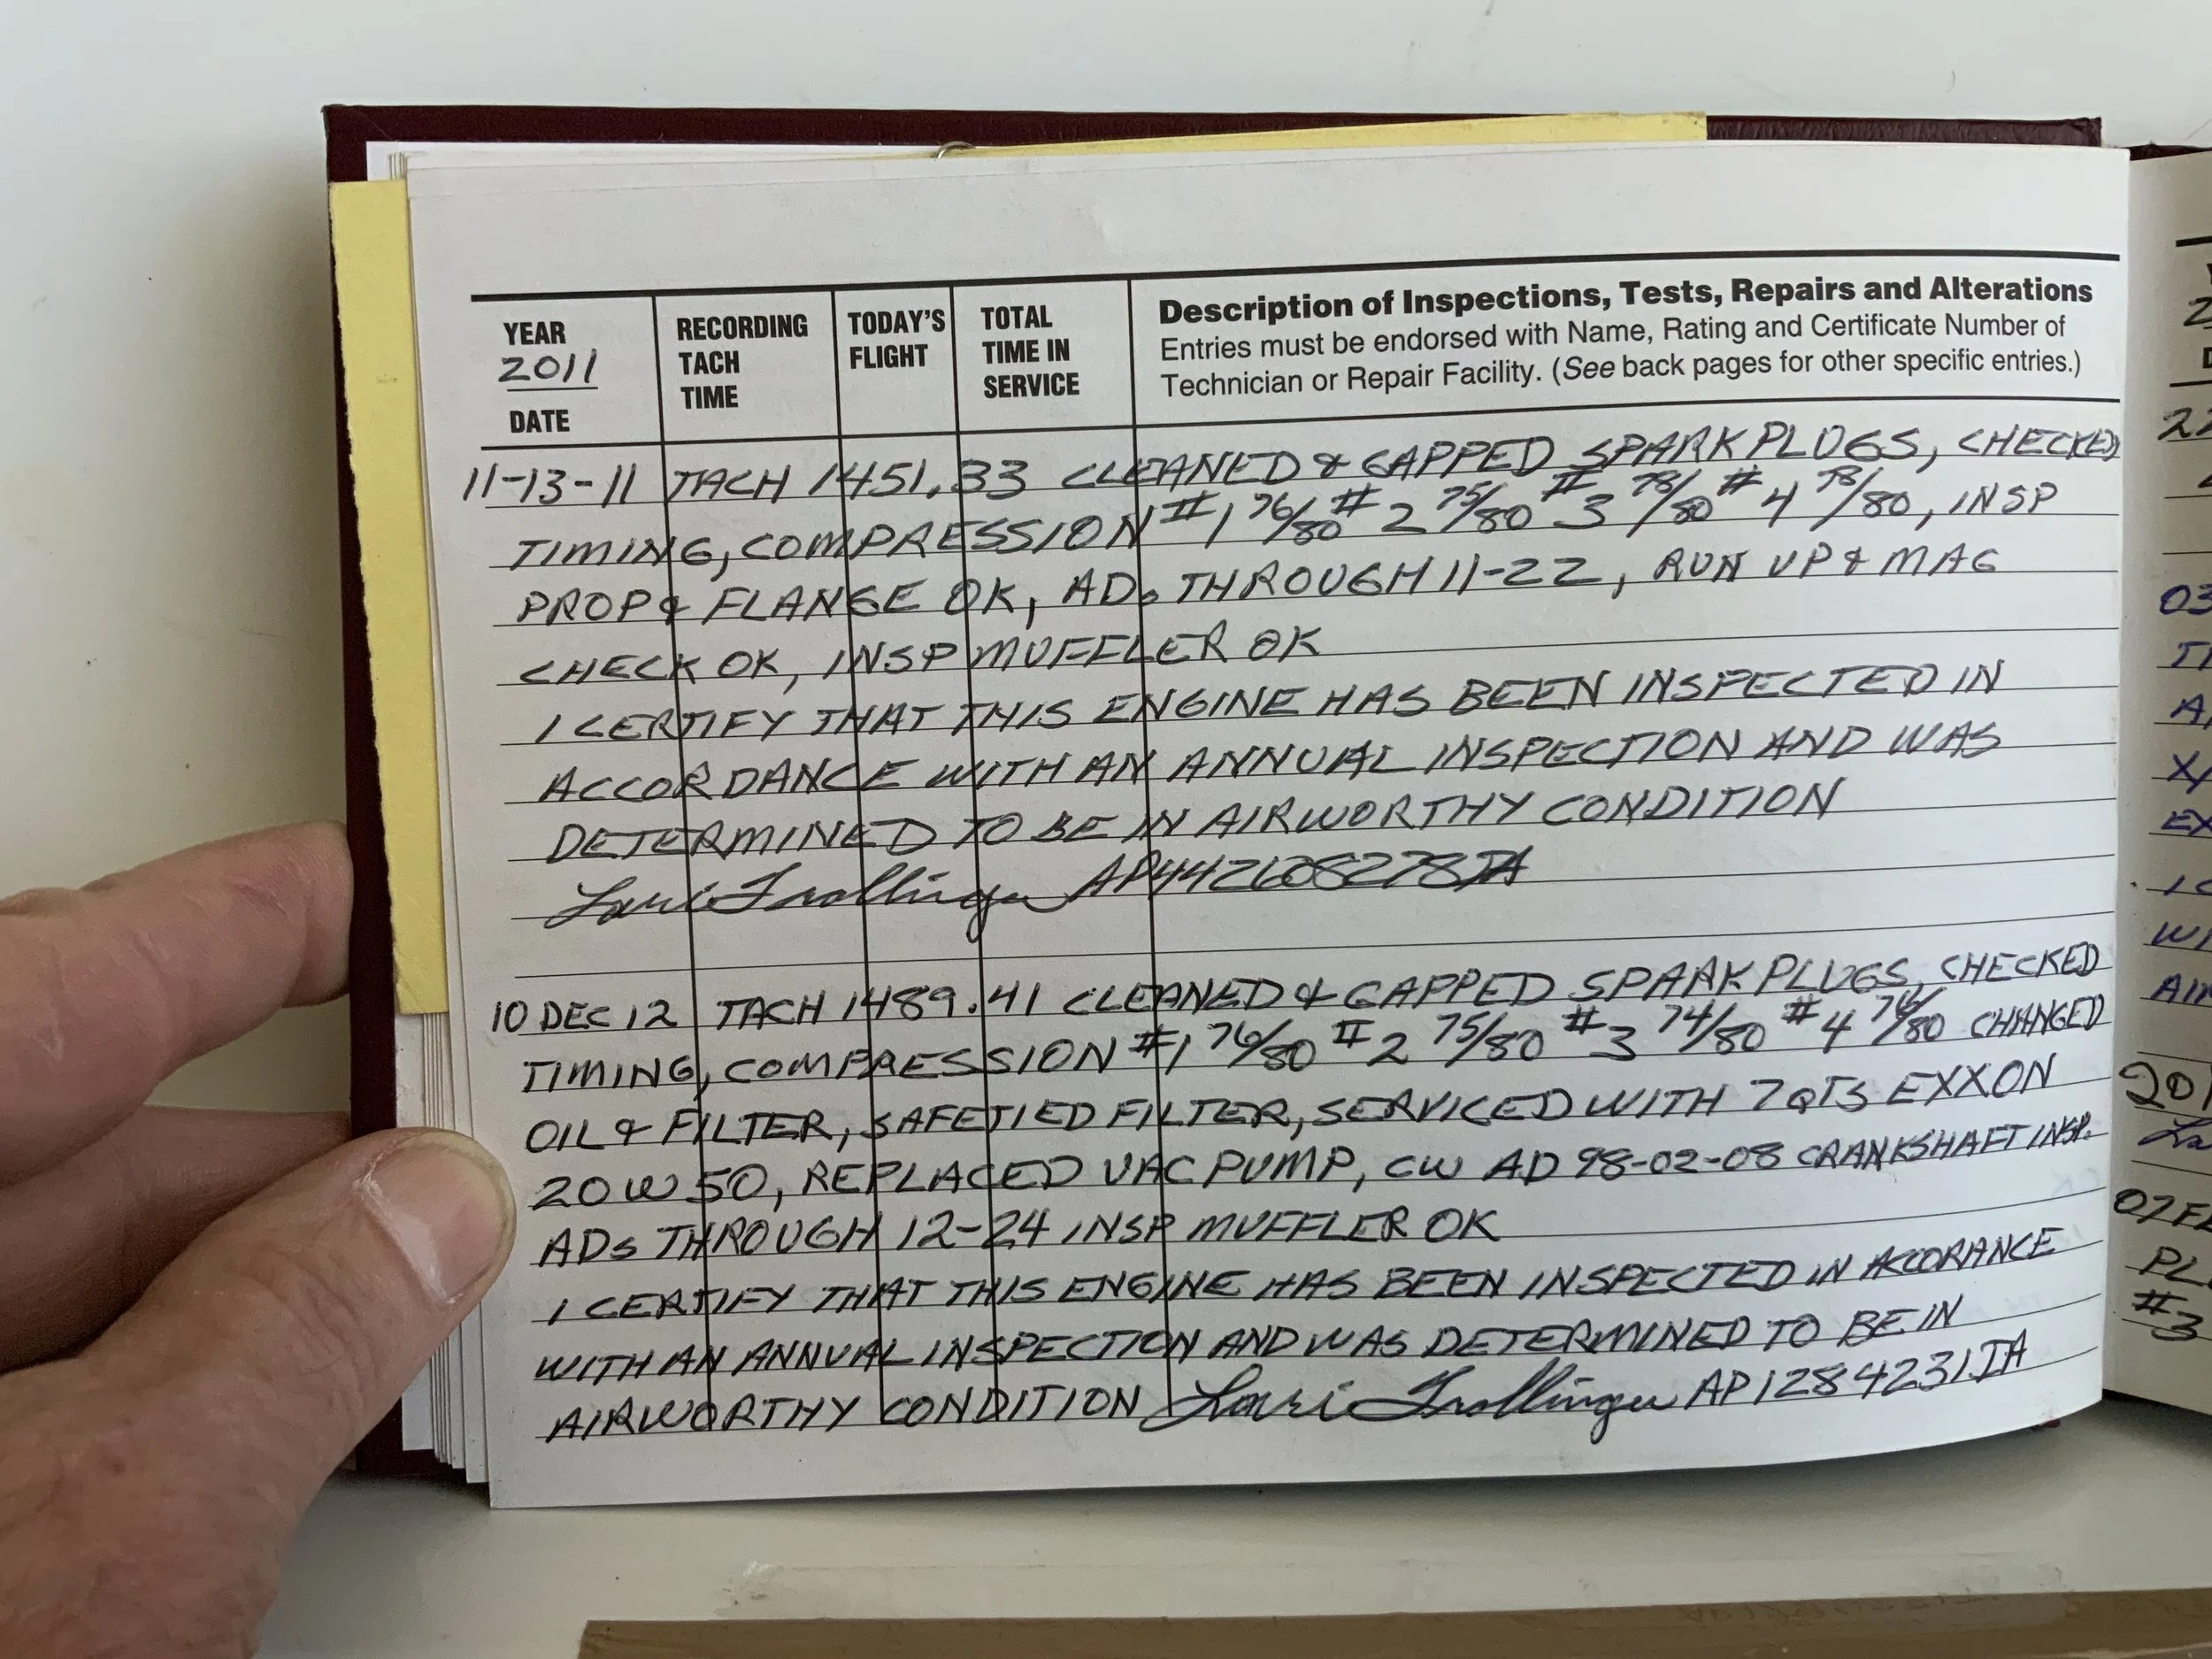 YEAR
2011
DATE
RECORDING
TACH
TIME
TODAY'S
FLIGHT
TOTAL
TIME IN
SERVICE
Description of Inspections, Tests, Repairs and Alterations
Entries must be endorsed with Name, Rating and Certificate Number of
Technician or Repair Facility. (See back pages for other specific entries.)
11-13-11 TACH 1451.33 CLEANED & GAPPED SPARK PLUGS, CHECKED
TIMING, COMPRESSION #1 76/80 #2 75/80 #3 78/80 #4 78/80, INSP
PROP & FLANGE OK, ADs THROUGH 11-22, RUN UP & MAG
CHECK OK, INSP MUFFLER OK
I CERTIFY THAT THIS ENGINE HAS BEEN INSPECTED IN
ACCORDANCE WITH AN ANNUAL INSPECTION AND WAS
DETERMINED TO BE IN AIRWORTHY CONDITION
Lori Trollinger AP442608278IA
10 DEC 12 TACH 1489.41 CLEANED & GAPPED SPARK PLUGS, CHECKED
TIMING, COMPRESSION #1 76/80 #2 75/80 #3 74/80 #4 76/80 CHANGED
OIL & FILTER, SAFETIED FILTER, SERVICED WITH 7 QTS EXXON
20W50, REPLACED VAC PUMP, CW AD 98-02-08 CRANKSHAFT INSP.
ADs THROUGH 12-24 INSP MUFFLER OK
I CERTIFY THAT THIS ENGINE HAS BEEN INSPECTED IN ACCORANCE
WITH AN ANNUAL INSPECTION AND WAS DETERMINED TO BE IN
AIRWORTHY CONDITION Lori Trollinger AP1284231IA